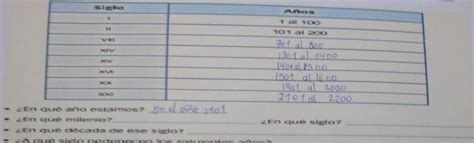 Siglo Años
I 1 al 100
II 101 al 200
VIII 701 al 800
XIV 1301 al 1400
XV 1401 al 1500
XVI 1501 al 1600
XX 1901 al 2000
XXII 2101 al 2200
¿En qué año estamos? En el año 2021
¿En qué milenio? ¿En qué siglo?
¿En qué década de ese siglo?
¿A qué siglo pertenecen los siguientes años?